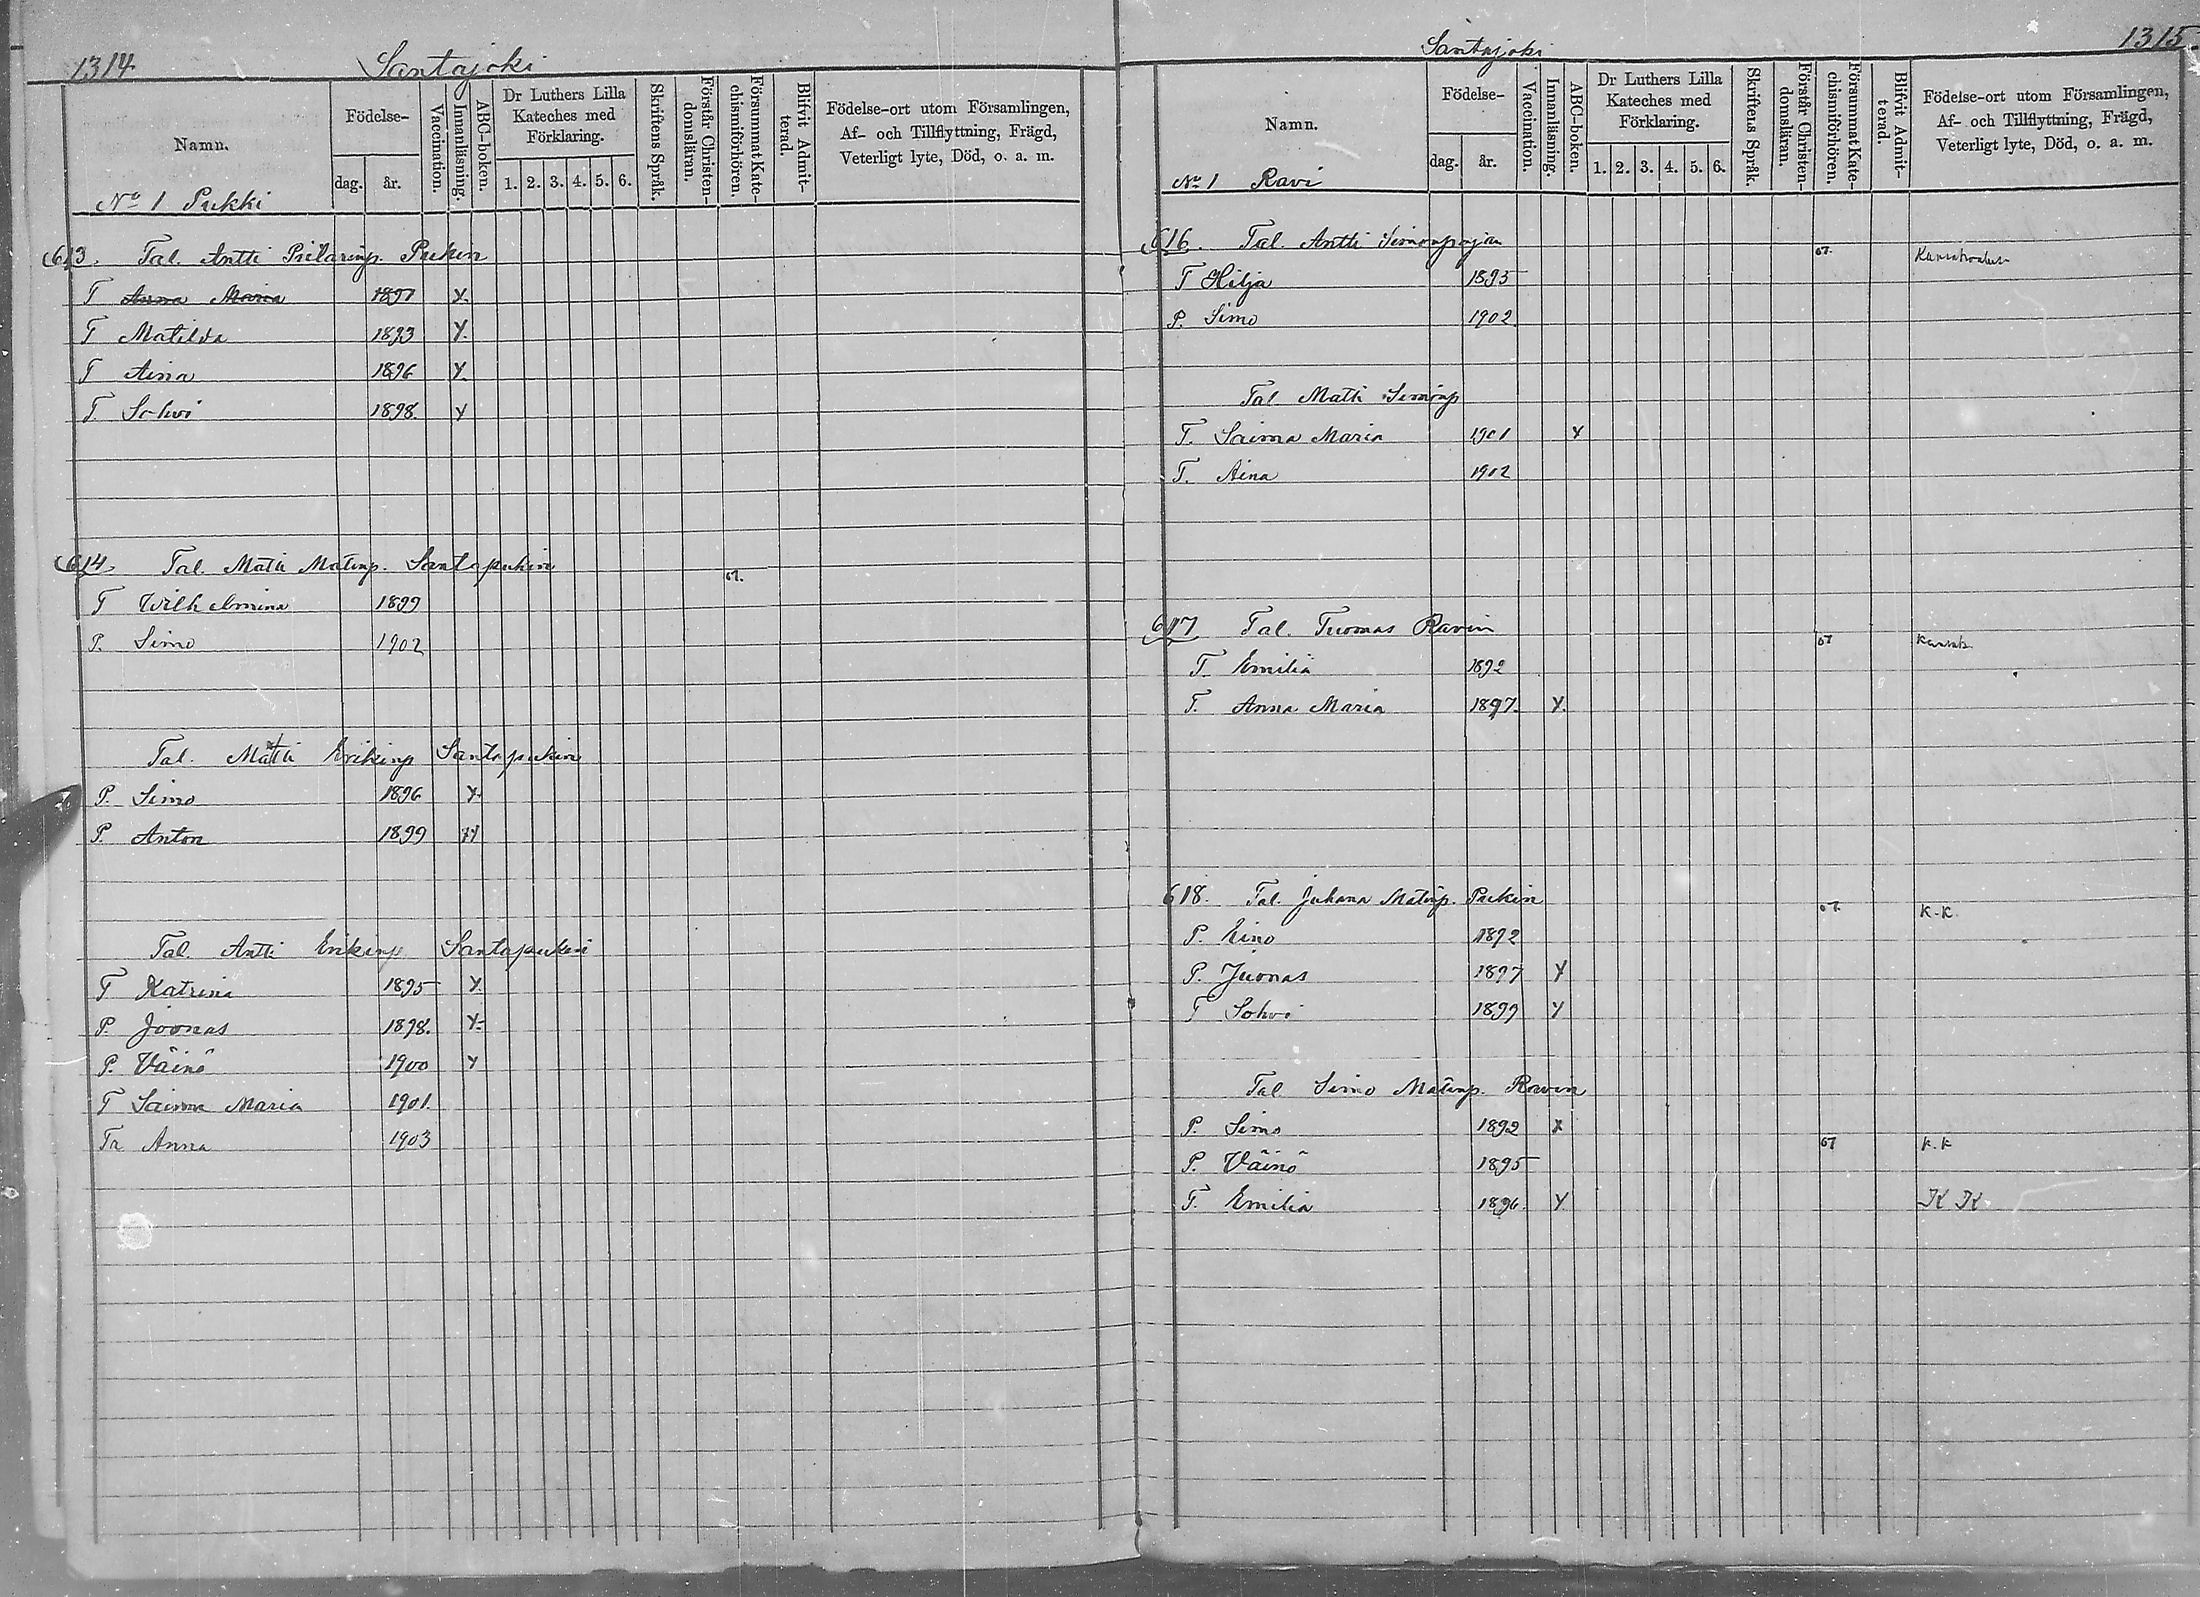 1314
Santajoki
Namn.
Födelse-
dag.
år.
Vaccination.
Innanläsning.
ABC-boken.
Dr Luthers Lilla Kateches med Förklaring.
1. 2. 3. 4. 5. 6.
Skriftens Språk.
Förstår Christendomsläran.
Försummat Katechismiförhören.
Blifvit Admitterad.
Födelse-ort utom Församlingen, Af- och Tillflyttning, Frägd, Veterligt lyte, Död, o. a. m.
No 1 Pukki
613. Tal. Antti Pukin
T Anna Maria 1897 X
T Matilda 1893 Y
T Aina 1896 Y
T. Sohvi 1898. Y
614. Tal. Matti Matinp. Santapukin 07.
T Wilhelmina 1899
P. Simo 1902
Tal. Matti Erikinp Santapukin
P. Simo 1896 Y
P. Anton 1899 YY
Tal. Antti Erikinp Santapukin
T Katrina 1895 Y
P. Joonas 1898. Y
P. Väinö 1900 Y
T Saima Maria 1901
Tr Anna 1903
Santajoki
1315
Namn.
Födelse-
dag.
år.
Vaccination.
Innanläsning.
ABC-boken.
Dr Luthers Lilla Kateches med Förklaring.
1. 2. 3. 4. 5. 6.
Skriftens Språk.
Förstår Christendomsläran.
Försummat Katechismiförhören.
Blifvit Admitterad.
Födelse-ort utom Församlingen, Af- och Tillflyttning, Frägd, Veterligt lyte, Död, o. a. m.
No 1 Ravi
616. Tal. Antti Simonpojan 07.
T Hilja 1895
P. Simo 1902
Tal Matti Simonp
T. Saima Maria 1901 Y
T. Aina 1902
617 Tal. Tuomas Ravin 07
T. Emilia 1892
T. Anna Maria 1897. Y.
618. Tal. Juhana Matinp. Pukin 07. K.K.
P. Eino 1892
P. Juonas 1897 Y
T Sohvi 1899 Y
Tal Simo Matinp. Ravin
P. Simo 1892 X 07 K.K
P. Väinö 1895
T. Emilia 1896. Y K K